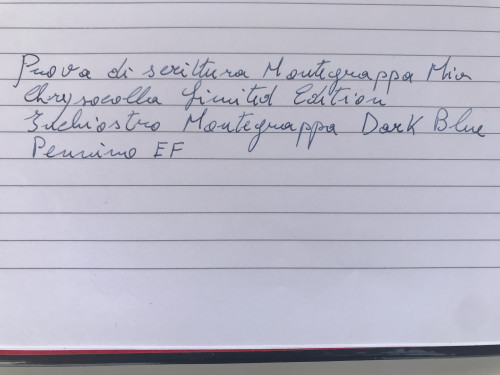 Prova di scrittura Montegrappa Mia
Chrysocolla Limited Edition
Inchiostro Montegrappa Dark Blue
Pennino EF